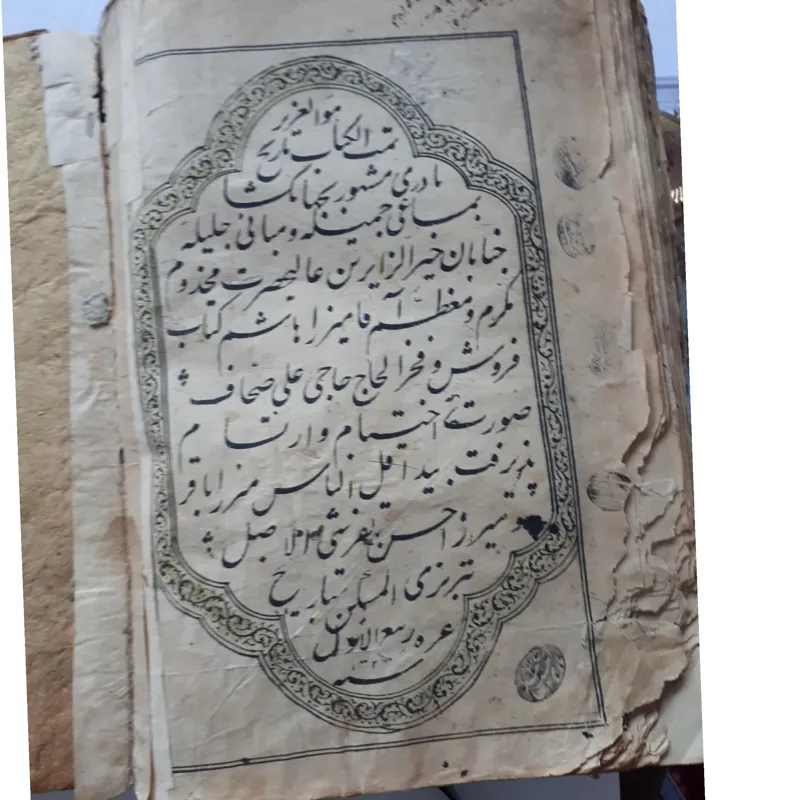 هو العزیز
تمت الکتاب تاریخ
نادری مشهور بجهانکشا
بمساعی جمیله و مبانی جلیله
جنابان خیر الزایرین عالیحضرت مخدوم
مکرم و معظم آقا میرزا هاشم کتاب
فروش و فخر الحاج حاجی علی صحاف
صورت اختتام و ارتسام
پذیرفت بید اقل الناس میرزا باقر
میرزا حسن تفرشی الاصل
تبریزی المسکن بتاریخ
غره ربیع الاول
سنه